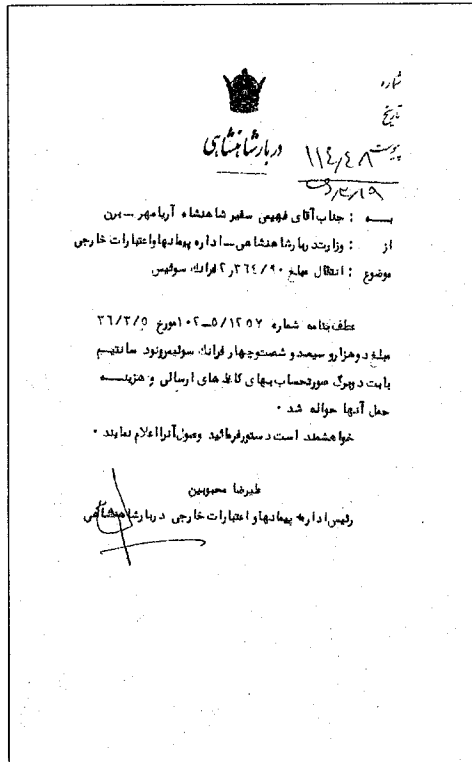 شماره
تاریخ
پیوست
۱۱٤/٤۸
دربار شاهنشاهی
۳/۱۹
به : جناب آقای فهیمی سفیر شاهنشاه آریامهر – برن
از : وزارت دربار شاهنشاهی – اداره پیمانها و اعتبارات خارجی
موضوع : انتقال مبلغ ۲٫۳٦٤/۹۰ فرانک سوئیس
عطف بنامه شماره ۱۰۲-۵/۱۲۵۷ مورخ ۳٦/۳/۵
مبلغ دو هزار و سیصد و شصت و چهار فرانک سوئیس و نود سانتیم
بابت دو برگ صورتحساب بهای کاغذهای ارسالی و هزینه
حمل آنها حواله شد .
خواهشمند است دستور فرمائید وصول آنرا اعلام نمایند .
علیرضا محبوبین
رئیس اداره پیمانها و اعتبارات خارجی دربار شاهنشاهی